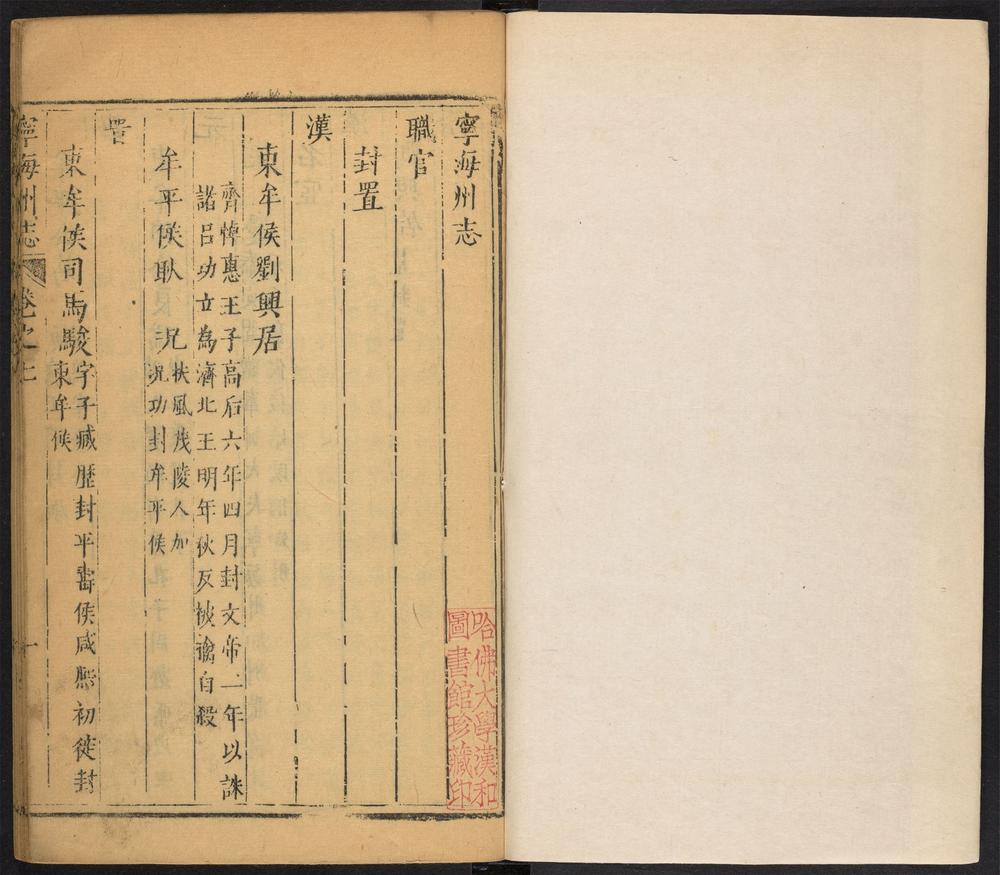 寧海州志
職官
封置
漢
東牟侯劉興居
齊悼惠王子高后六年四月封文帝二年以誅
諸呂功立為濟北王明年秋反被擒自殺
牟平侯耿
兄扶風茂陵人加
况功封牟平侯
東牟侯司馬駿字子臧歷封平壽侯咸熙初徙封
東牟侯
寧海州志
卷之上
一
哈佛大學漢和
圖書館珍藏印